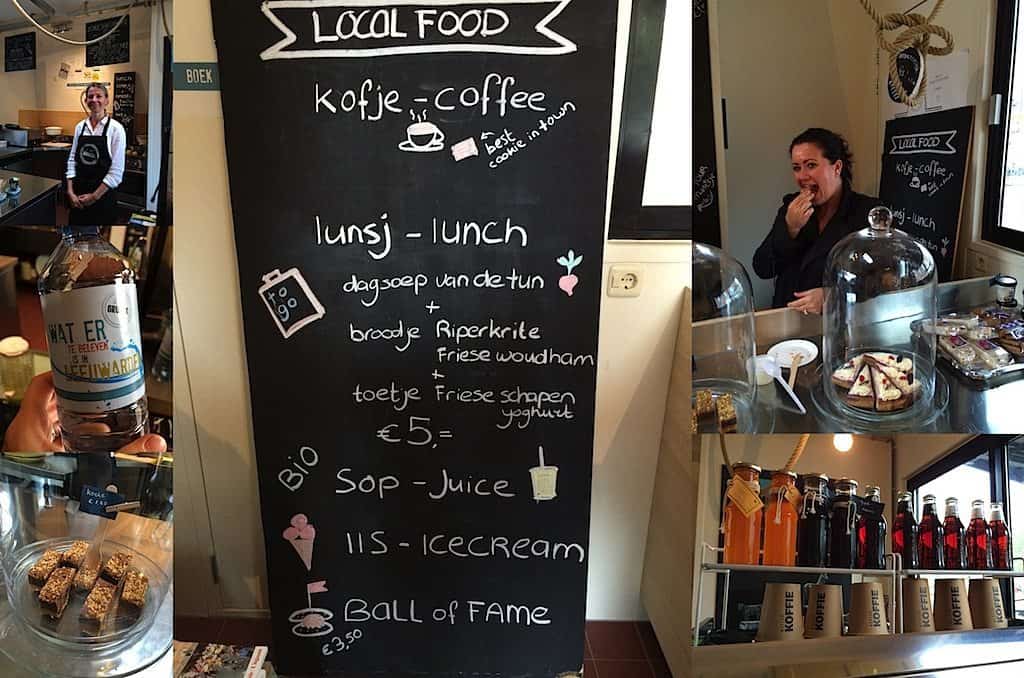 LOCAL FOOD
kofje - coffee
← best
cookie in town
lunsj - lunch
to
go
dagsoep van de tun
+
broodje Riperkrite
Friese woudham
+
toetje Friese schapen
yoghurt
€ 5,=
BIO
SOP - Juice
IIS - ICECREAM
BALL OF FAME
€3,50
BOEK
WAT ER
TE BELEVEN
IS IN
LEEUWARDEN
LOCAL FOOD
kofje - coffee
lunsj - lunch
KOFFIE
KOFFIE
KOFFIE
KOFFIE
KOFFIE
KOFFIE